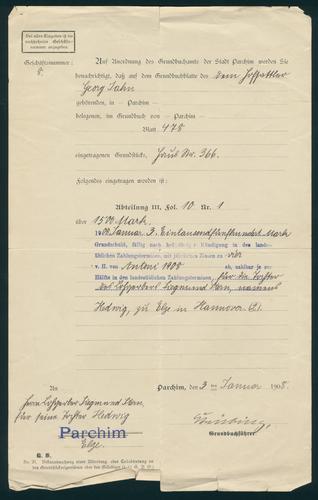 Bei allen Eingaben ist die
nachstehende Geschäfts-
nummer anzugeben.
Geschäftsnummer:
8.
Auf Anordnung des Grundbuchamts der Stadt Parchim werden Sie
benachrichtigt, daß auf dem Grundbuchblatte des dem Hofsattler
Georg Jahn
gehörenden, in — Parchim —
belegenen, im Grundbuch von — Parchim —
Blatt 478
eingetragenen Grundstücks, Haus Nr. 366.
Folgendes eingetragen worden ist:
Abteilung III, Fol. 10 Nr. 1
über 1500 Mark.
1908 Januar 3. Eintausendfünfhundert Mark
Grundschuld, fällig nach Kündigung in den land-
üblichen Zahlungsterminen, mit jährlichen Zinsen zu vier
v. H. von Antoni 1908 ab, zahlbar je zur
Hälfte in den landesüblichen Zahlungsterminen, für die Tochter
des Lohgerbers Siegmund Kern, namens
Hedwig, zu Elze in Hannover.
An
Herrn Lohgerber Siegmund Kern,
für seine Tochter Hedwig
Parchim
Elze.
Parchim, den 3 ten Januar 1908.
Grundbuchführer.
G. S.